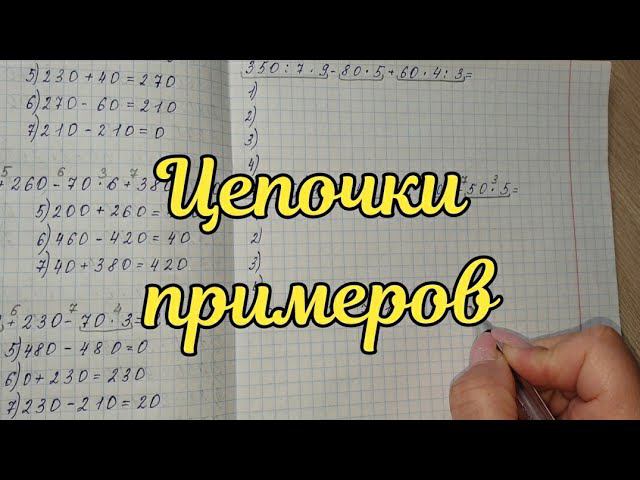 5) 230 + 40 = 270
6) 270 - 60 = 210
7) 210 - 210 = 0
5 6 3 7
+ 260 - 70 · 6 + 380
5) 200 + 260 =
6) 460 - 420 = 40
7) 40 + 380 = 420
6 7 4
+ 230 - 70 · 3 =
5) 480 - 480 = 0
6) 0 + 230 = 230
7) 230 - 210 = 20
350 : 7 · 9 - 80 · 5 + 60 · 4 : 3 =
1)
2)
3)
4)
7 3
50 · 5 =
2)
3)
Цепочки
примеров